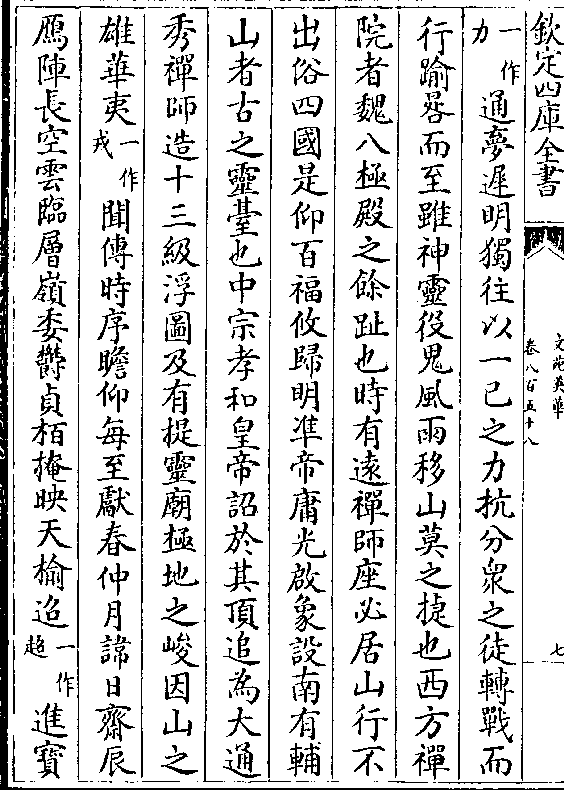 欽定四庫全書
文苑英華
卷八百五十八
七
一作力通夢遲明獨往以一已之力抗分衆之徒轉戰而
行踰晷而至雖神靈役鬼風雨移山莫之捷也西方禪
院者魏八極殿之餘趾也時有遠禪師座必居山行不
出俗四國是仰百福攸歸明準帝庸光啟象設南有輔
山者古之靈臺也中宗孝和皇帝詔於其頂追為大通
秀禪師造十三級浮圖及有提靈廟極地之峻因山之
雄華夷一作戎聞傳時序瞻仰每至獻春仲月諱日齋辰
鴈陣長空雲臨層嶺委欝貞柏掩映天榆迢一作超進寶